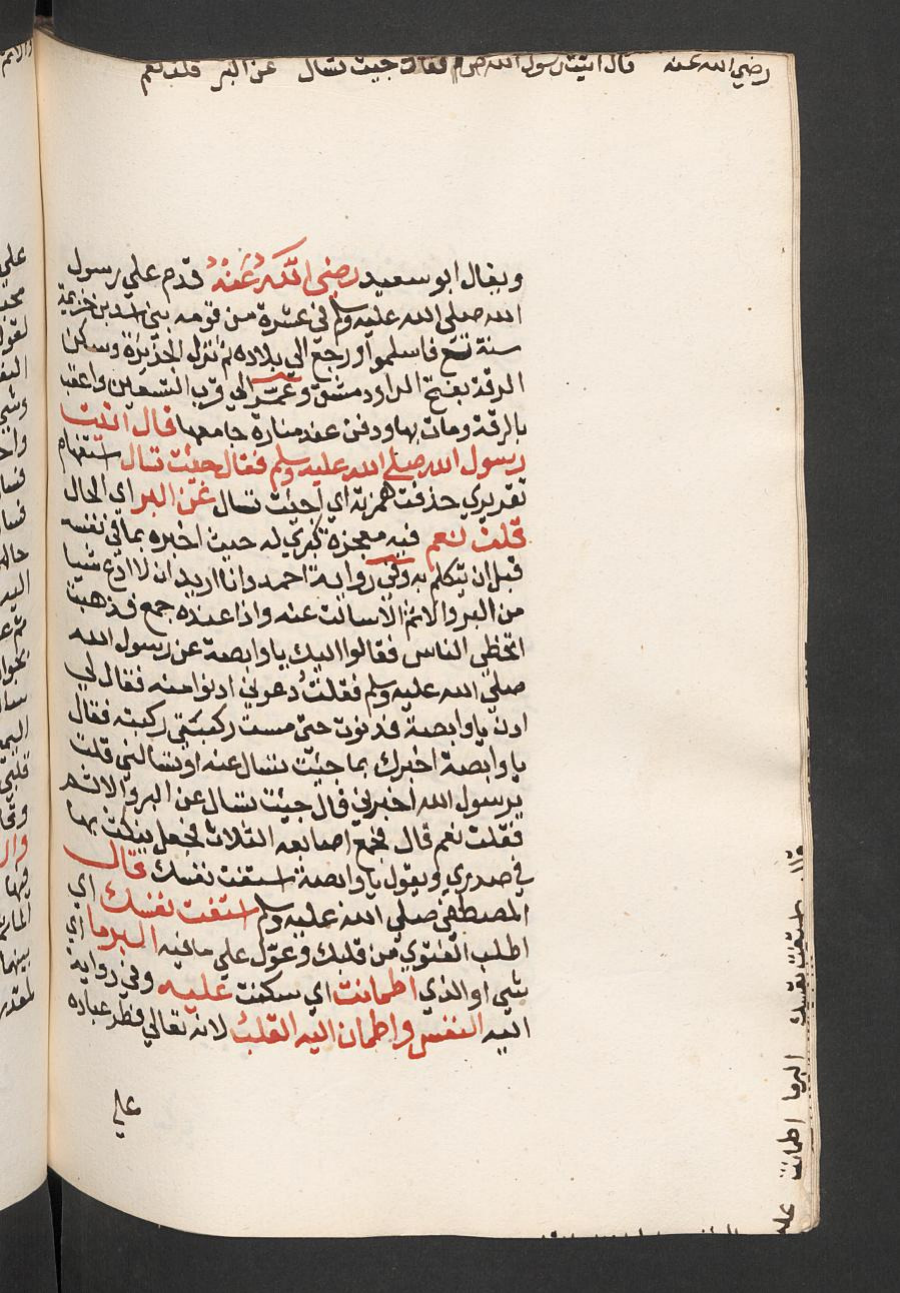 رضي الله عنه قال اتيت رسول الله صلم فقال جيت تسال عن البر قلت نعم
ويقال ابو سعيد رضي الله عنه قدم علي رسول
الله صلي الله عليه وسلم في عشرة من قومه بني اسد بن خزيمة
سنة تسع فاسلموا ورجع الي بلاده ثم نزل الجزيرة وسكن
الرقة بفتح الرا ودمشق وعمر الي قرب التسعين واعقب
بالرقة ومات بها ودفن عند منارة جامعها قال اتيت
رسول الله صلي الله عليه وسلم فقال جئت تسال استفهام
تقريري حذفت همزته اي اجئت تسال عن البر اي الحال
قلت نعم فيه معجزة كبري له حيث اخبره بما في نفسه
قبل ان يتكلم به وفي رواية احمد وانا اريد ان لا ادع شيا
من البر والاثم الا سالت عنه واذا عنده جمع فذهبت
اتخطي الناس فقالوا اليك يا وابصة عن رسول الله
صلي الله عليه وسلم فقلت دعوني ادنوا منه فقال لي
ادن يا وابصة فدنوت حتي مست ركبتي ركبته فقال
يا وابصة اخبرك بما جيت تسال عنه او تسالني قلت
يرسول الله اخبرني قال جيت تسال عن البر والاثم
فقلت نعم قال فجمع اصابعه الثلاث فجعل ينكت بها
في صدري ويقول يا وابصة استفت نفسك قال
المصطفي صلي الله عليه وسلم استفت نفسك اي
اطلب الفتوي من قلبك وعوّل علي مافيه البر ما اي
شي او الذي اطمانت اي سكنت عليه وفي رواية
اليه النفس واطمان اليه القلب لانه تعالي فطر عباده
علي
استفت نفسك البر ما اطمانت عليه